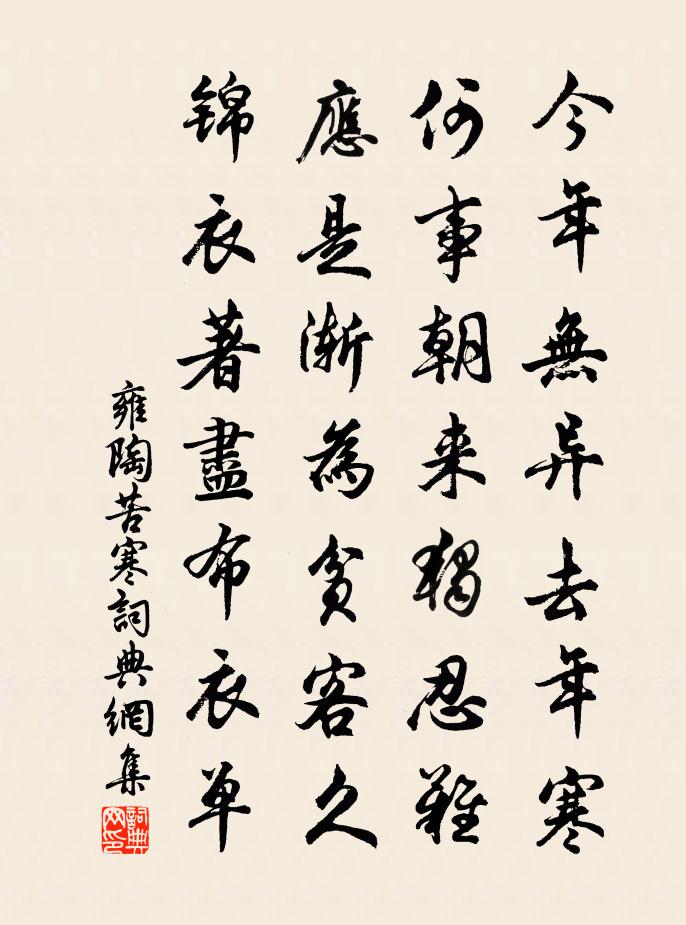 今年無异去年寒
何事朝来獨忍難
應是漸為貧客久
锦衣著盡布衣単
雍陶苦寒詞典網集
詞典
网印